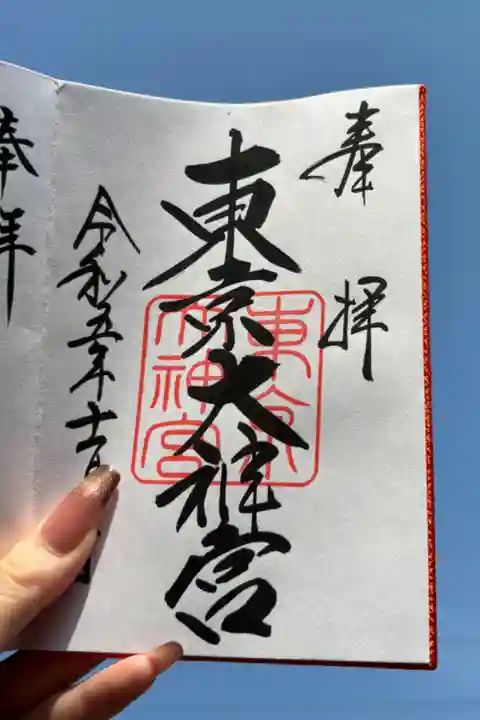 奉拝
東京大神宮
東京大神宮
令和五年十一月
奉拝